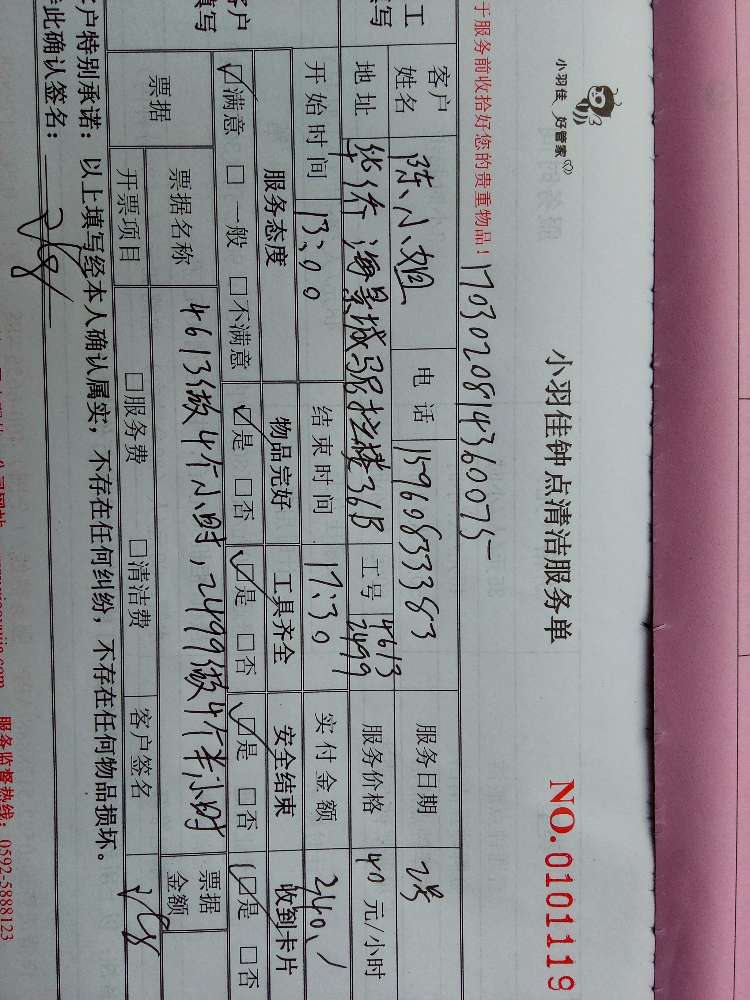 小羽佳 好管家
小羽佳钟点清洁服务单
NO.0101119
于服务前收拾好您的贵重物品！
1703020814360075
工
写
客户姓名 陈小姐 电话 15960833383 服务日期 2号
地址 华侨海景城 36B 工号 4613 2499 服务价格 40 元/小时
开始时间 13:00 结束时间 17:30 实付金额 340
客户
填写
服务态度 物品完好 工具齐全 安全结束 收到卡片
☑满意 □一般 □不满意 ☑是 □否 ☑是 □否 ☑是 □否 ☑是 □否
票据 票据名称 4613做4个小时，2499做4个半小时 票据金额
开票项目 □服务费 □清洁费 客户签名
客户特别承诺：以上填写经本人确认属实，不存在任何纠纷，不存在任何物品损坏。
此确认签名：
服务监督热线：0592-5888123